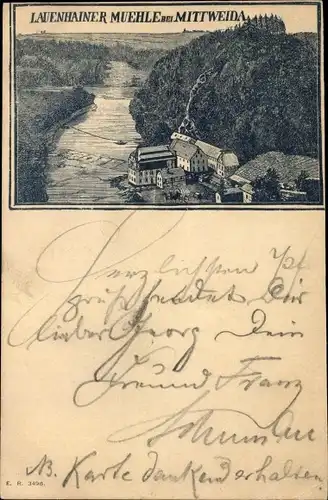 LAUENHAINER MUEHLE BEI MITTWEIDA
Herzlichsten
gruß sendet Dir
lieber Georg Dein
Freund Franz
NB. Karte dankend erhalten.
E. R. 3498.